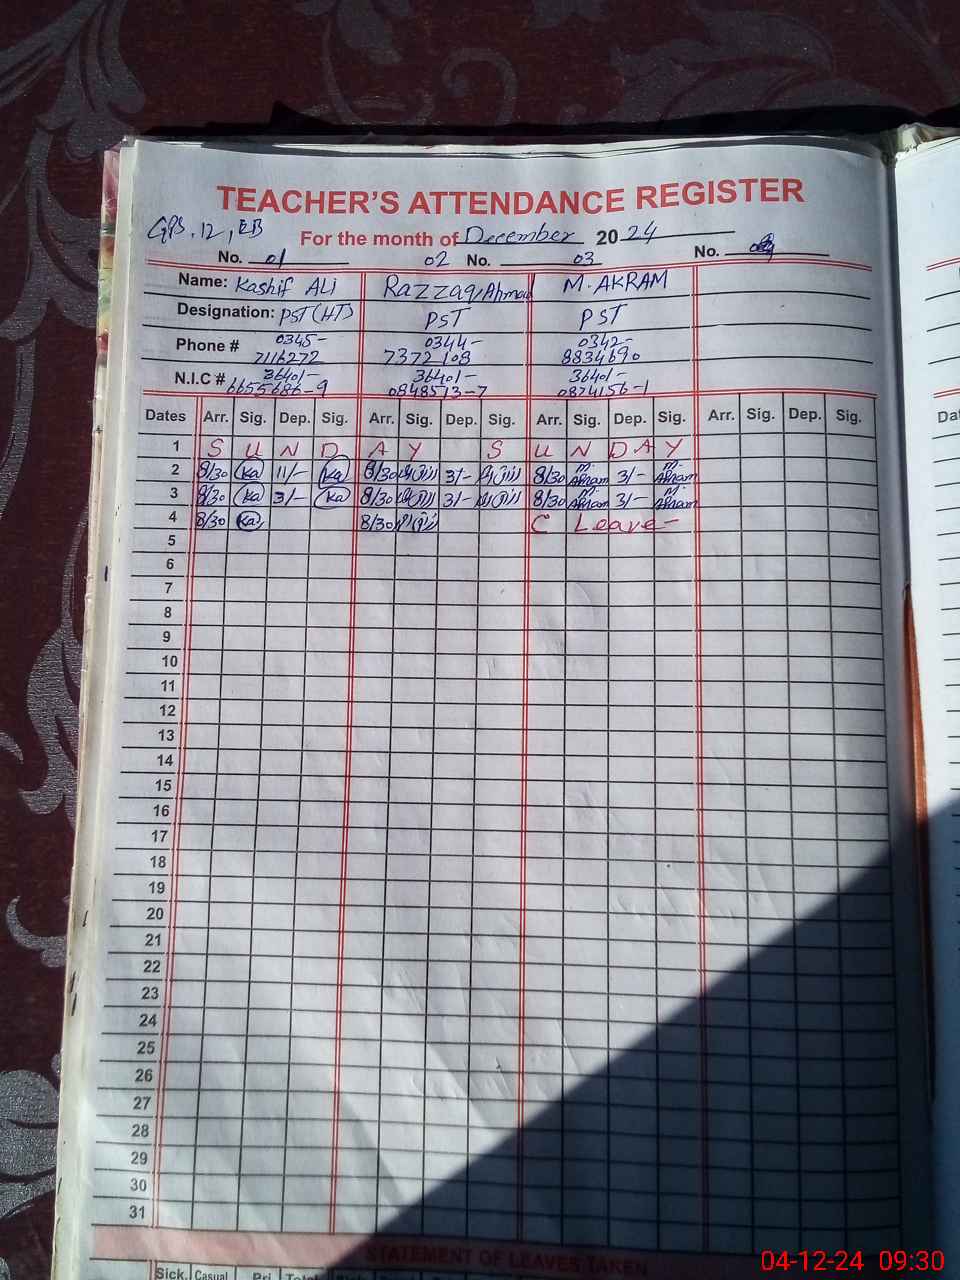 TEACHER'S ATTENDANCE REGISTER
GPS, 12, EB
For the month of December 2024
No. 01 02 No. 03 No.
Name: Kashif ALi Razzaq Ahmad M. AKRAM
Designation: PST (HT) PST PST
Phone # 0345- 0344- 0342-
7116272 7372108 8834690
N.I.C # 36401- 36401- 36401-
6655686-9 0848513-7 0874156-1
Dates Arr. Sig. Dep. Sig. Arr. Sig. Dep. Sig. Arr. Sig. Dep. Sig. Arr. Sig. Dep. Sig.
1 S U N D A Y S U N D A Y
2 8/30 Ka 11/- Ka 8/30 3/- 8/30 M. Akram 3/- M. Akram
3 8/30 Ka 3/- Ka 8/30 3/- 8/30 M. Akram 3/- M. Akram
4 8/30 Ka 8/30 C Leave-
5
6
7
8
9
10
11
12
13
14
15
16
17
18
19
20
21
22
23
24
25
26
27
28
29
30
31
STATEMENT OF LEAVES TAKEN
Sick. Casual Pri Total
04-12-24 09:30